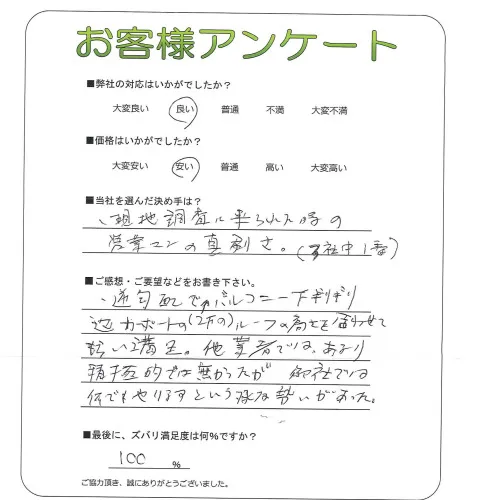 お客様アンケート
■弊社の対応はいかがでしたか？
大変良い 良い 普通 不満 大変不満
■価格はいかがでしたか？
大変安い 安い 普通 高い 大変高い
■当社を選んだ決め手は？
、現地調査に来られた時の
営業マンの真剣さ。(3社中1番)
■ご感想・ご要望などをお書き下さい。
、逆勾配でバルコニー下ギリギリ
迄カーポートの(2方の)ルーフの高さを合わせて
払い満足。他業者では、あまり
積極的では無かったが 御社では
何でもやりますという様な勢いがあった。
■最後に、ズバリ満足度は何%ですか？
100 %
ご協力頂き、誠にありがとうございました。